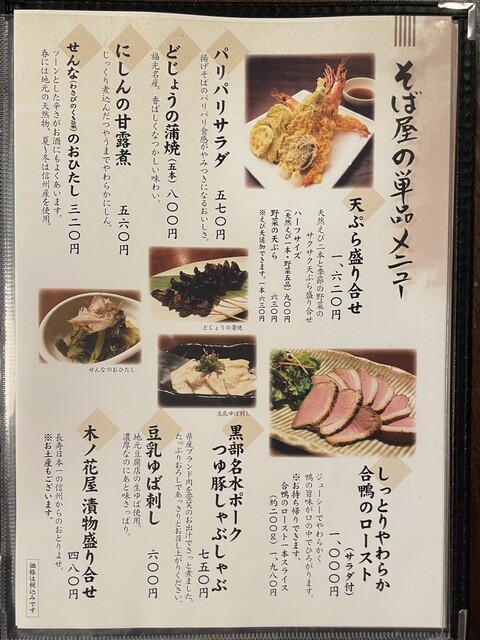 そば屋の単品メニュー
天ぷら盛り合せ
一、六二〇円
天然えび二本と季節の野菜の
サクサク天ぷら盛り合せ
ハーフサイズ
(天然えび一本・野菜五品) 九〇〇円
野菜の天ぷら 六三〇円
※えび天追加できます。一本六三〇円
パリパリサラダ 五七〇円
揚げそばのパリパリ食感がやみつきになるおいしさ。
どじょうの蒲焼(五本) 八〇〇円
福光名産。香ばしくなつかしい味わい。
にしんの甘露煮 五六〇円
じっくり煮込んだつやうまでやわらかにしん。
せんな(わさびのくき葉)のおひたし 三二〇円
ツーンとした辛さがお酒にもよくあいます。
春には地元の天然物、夏〜冬は信州産を使用。
どじょうの蒲焼
せんなのおひたし
豆乳ゆば刺し
しっとりやわらか
合鴨のロースト(サラダ付)
一、〇〇〇円
ジューシーでやわらかく
鴨の旨味が口の中でひろがります。
※お持ち帰りできます。
合鴨のロースト一本スライス
(約二〇〇g) 一、九八〇円
黒部名水ポーク
つゆ豚しゃぶしゃぶ
七五〇円
県産ブランド肉を登笑のお出汁でさっと煮ました。
たっぷりおろしであっさりとお召し上がりください。
豆乳ゆば刺し 六〇〇円
地元豆腐店の生ゆば使用。
濃厚なのにあと味さっぱり。
木ノ花屋 漬物盛り合せ
四八〇円
長寿日本一の信州からのおとりよせ。
※お土産もございます。
価格は税込みです